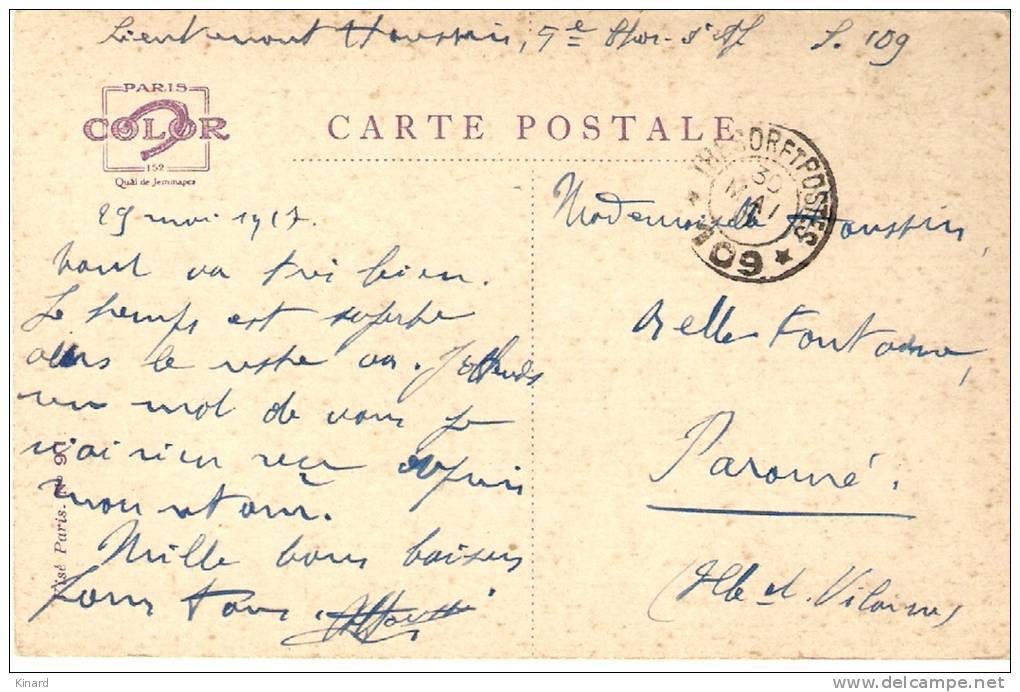 Lieutenant Houssin, 5e Chas. d'Af S. 109
PARIS
COLOR
152
Quai de Jemmapes
CARTE POSTALE
TRESOR ET POSTES
30
MAI
17
* 109 *
29 mai 1917.
Mademoiselle Houssin,
Tout va très bien.
Le temps est superbe
alors le reste va. J'attends
un mot de vous je
n'ai rien reçu depuis
mon retour.
Mille bons baisers
pour tous.
Belle Fontaine,
Paramé.
(Ille et Vilaine)
Visé Paris. No 9
Kinard
delcampe.net